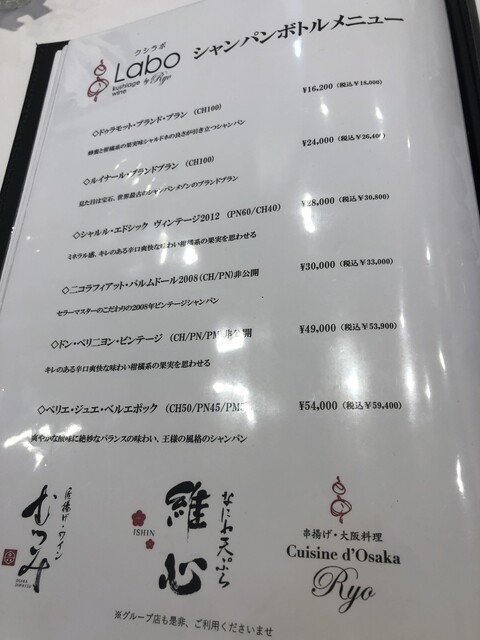 クシラボ
Labo
kushiage
wine
by Ryo
シャンパンボトルメニュー
◇ドゥラモット・ブランド・ブラン (CH100) ¥16,200（税込￥18,000）
蜂蜜と柑橘系の果実味シャルドネの良さが引き立つシャンパン
◇ルイナール・ブランドブラン (CH100) ¥24,000（税込￥26,400）
見た目は宝石、世界最古のシャンパンメゾンのブランドブラン
◇シャルル・エドシック ヴィンテージ2012 (PN60/CH40) ¥28,000（税込￥30,800）
ミネラル感、キレのある辛口爽快な味わい柑橘系の果実を思わせる
◇ニコラフィアット・パルムドール2008(CH/PN)非公開 ¥30,000（税込￥33,000）
セラーマスターのこだわりの2008年ビンテージシャンパン
◇ドン・ペリニヨン・ビンテージ (CH/PN/PM)非公開 ¥49,000（税込￥53,900）
キレのある辛口爽快な味わい柑橘系の果実を思わせる
◇ベリエ・ジュエ・ベルエポック (CH50/PN45/PM ¥54,000（税込￥59,400）
爽やかな酸味に絶妙なバランスの味わい、王様の風格のシャンパン
串揚げ・ワイン
むつみ
なにわ天ぷら
維心
ISHIN
串揚げ・大阪料理
Cuisine d'Osaka
Ryo
※グループ店も是非、ご利用くださいませ